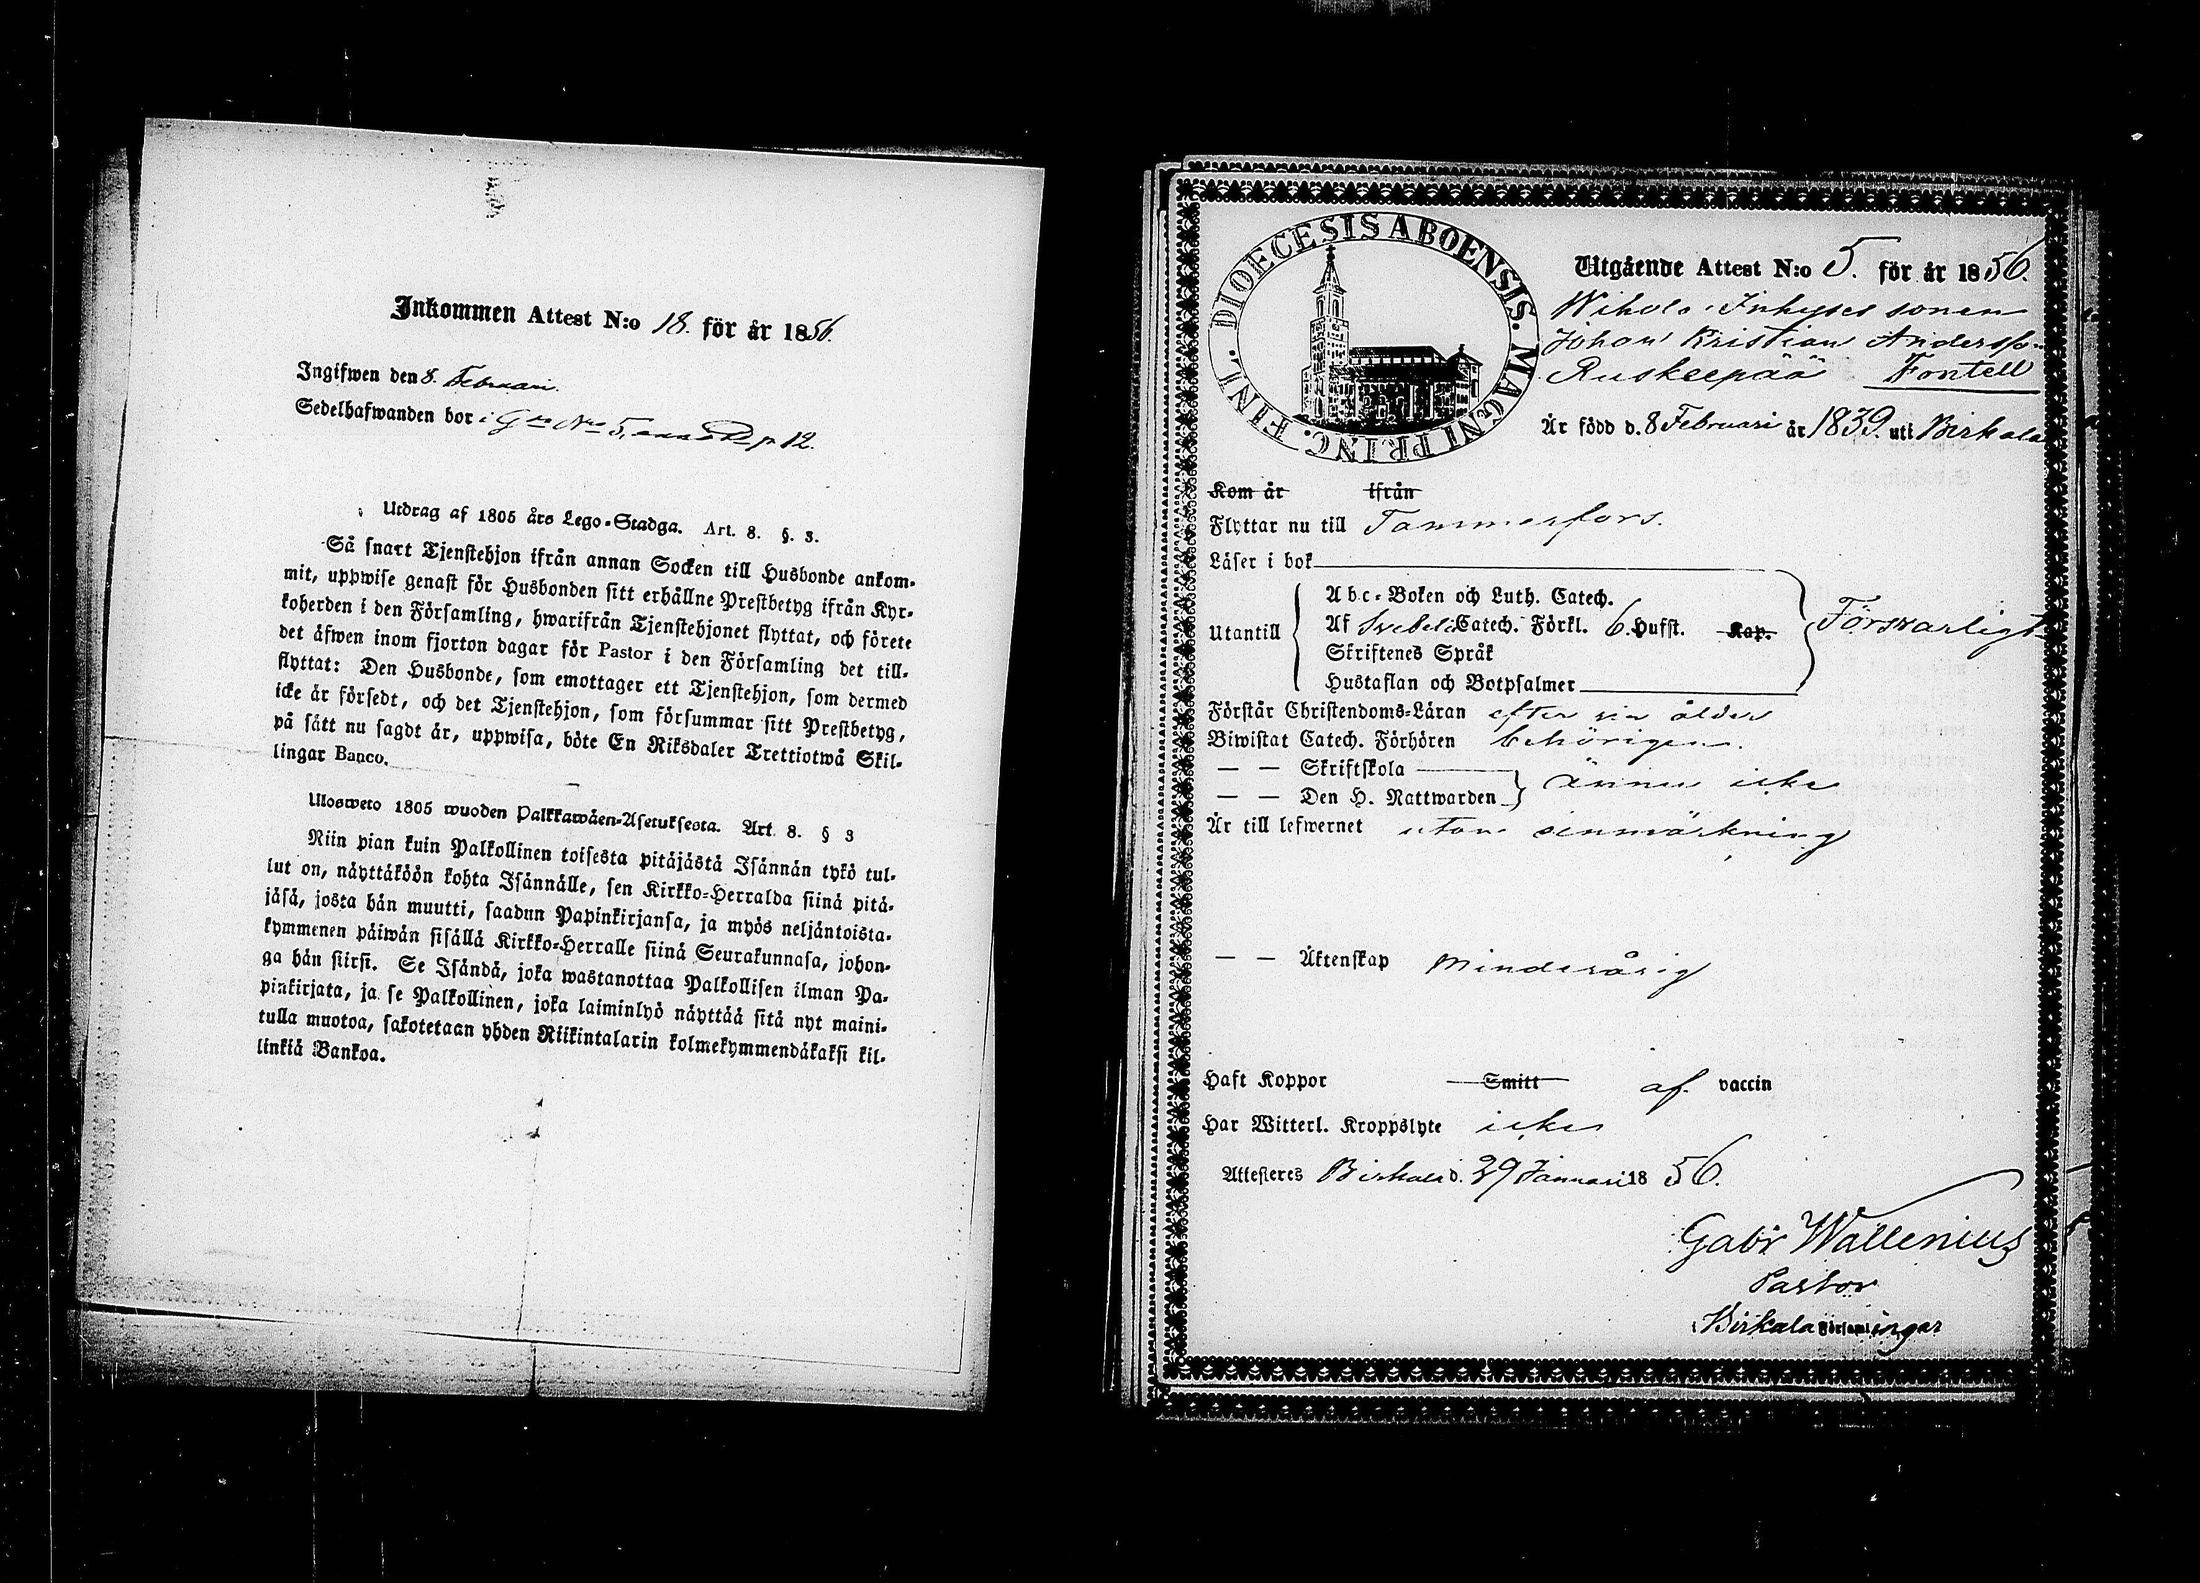 Inkommen Attest N:o 18. för år 1856.
Ingifwen den 8. Februari.
Sedelhafwanden bor i No 5, p 12.
Utdrag af 1805 års Lego-Stadga. Art. 8. §. 3.
Så snart Tjenstehjon ifrån annan Socken till Husbonde ankom-
mit, uppwise genast för Husbonden sitt erhållne Prestbetyg ifrån Kyr-
koherden i den Församling, hwarifrån Tjenstehjonet flyttat, och förete
det äfwen inom fjorton dagar för Pastor i den Församling det till-
flyttat: Den Husbonde, som emottager ett Tjenstehjon, som dermed
icke är försedt, och det Tjenstehjon, som försummar sitt Prestbetyg,
på sätt nu sagdt är, uppwisa, böte En Riksdaler Trettiotwå Skil-
lingar Banco.
Ulosweto 1805 wuoden Palkkawäen-Asetuksesta. Art. 8. § 3
Niin pian kuin Palkollinen toisesta pitäjästä Isännän tykö tul-
lut on, näyttäköön kohta Isännälle, sen Kirkko-Herralda siinä pitä-
jäsä, josta hän muutti, saadun Papinkirjansa, ja myös neljäntoista-
kymmenen päiwän sisällä Kirkko-Herralle siinä Seurakunnasa, johon-
ga hän siirsi. Se Isändä, joka wastanottaa Palkollisen ilman Pa-
pinkirjata, ja se Palkollinen, joka laiminlyö näyttää sitä nyt maini-
tulla muotoa, sakotetaan yhden Riikintalarin kolmekymmendäkaksi kil-
linkiä Bankoa.
DIOECESIS ABOENSIS. MAGNI PRINC. FINL.
Utgående Attest N:o 5. för år 1856.
Wihola Inhyses sonen
Johan Kristian Anderss:n
Ruskeepää Fontell
Är född d. 8 Februari år 1839. uti Birkala
Kom år ifrån
Flyttar nu till Tammerfors.
Läser i bok
Utantill
Abc-Boken och Luth. Catech.
Af Svebelii Catech. Förkl. 6. Hufst. Kap.
Skriftenes Språk
Hustaflan och Botpsalmer
Försvarligt
Förstår Christendoms-Läran efter sin ålder
Biwistat Catech. Förhören behörigen.
— — Skriftskola
— — Den H. Nattwarden
ännu icke
Är till lefwernet utan anmärkning
— — Äktenskap Minderårig
Haft Koppor Smitt af vaccin
Har Witterl. Kroppslyte icke
Attesteres Birkala d. 29 Januari 1856.
Gabr Wallenius
Pastor
i Birkala Församlingar